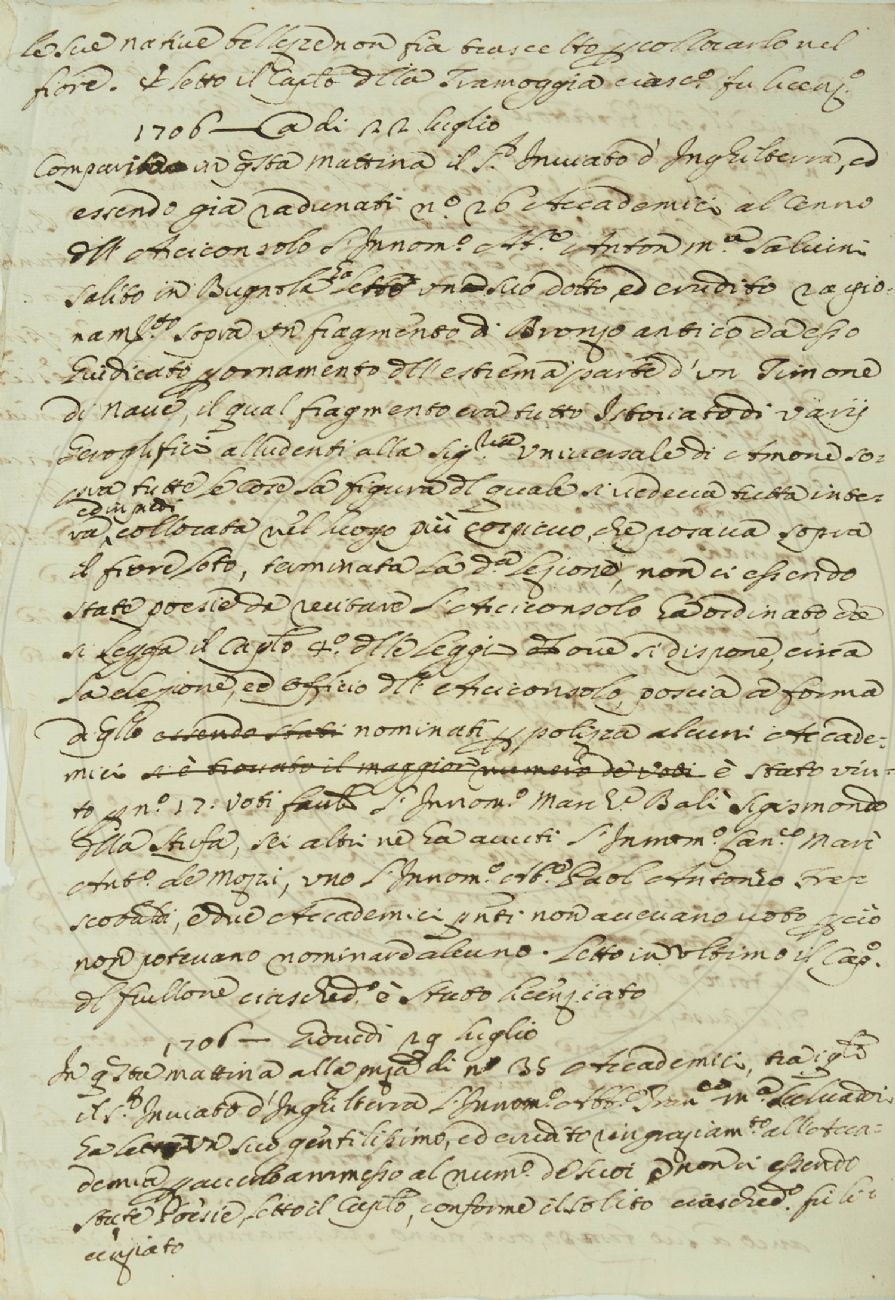 le sue native bellezze non sia trascelto p collocarlo nel
fiore. E letto il Caplo dlla Tramoggia ciasco. fu licenzo.
1706 — a di 22 luglio
Comparito in qsta mattina il Sr. Inviato d' Inghilterra, ed
essendo già radunati no. 26 Accademici al Cenno
dll' Arciconsolo l'Innomo. Abe. Anton ma. Salvini
salito in Bugnola ha letto un suo dotto, ed erudito ragio-
namto. sopra un fragmento di Bronzo antico da esso
Giudicato p ornamento dll' estrema parte d' un Timone
di Nave, il qual fragmento era tutto Istoriato di varij
Geroglifici alludenti alla Sigria universale di Amore so-
pra tutte le cose la figura dl quale si vedeva tutta inte-
ra, ed in piedi collocata nel luogo più cospicuo, che posava sopra
il fiore loto, terminata la da. lezione, non ci essendo
state poesie da recitare l'Arciconsolo ha ordinato, che
si legga il Caplo 4o. dlle Leggi ove si dispone, circa
la elezione, ed offizio dll' Arciconsolo, poscia a forma
di qllo essendo stati nominati p polizza alcuni Accade-
mici si è trovato il maggior numero de voti è stato vin-
to p no. 17. voti l'Innomo. Marche. Balì Sigismondo
dlla Stufa, sei altri ne ha avuti l'Innomo. Sanco. Mare
Anto. de Mozzi, uno l'Innomo. Abe. Paol Antonio Fre-
scobaldi, e due Accademici pnti non avevano voto p ciò
non potevano nominare alcuno. Letto in ultimo il Capo.
dl frullone ciaschedo. è stato licenziato
1706 — Giovedi 29 luglio
In qsta mattina alla pnza di no. 35 Accademici, tra i qli
il Sr. Inviato d'Inghilterra l'Innomo. Abe. Franco. Ma. Salvadori
ha letto un suo gentilissimo, ed erudito ringraziamto. all'Acca-
demia p averlo ammesso al numo. de suoi e non ci essendo
state Poesie, letto il Caplo, conforme il solito ciaschedo. fu li-
cenziato